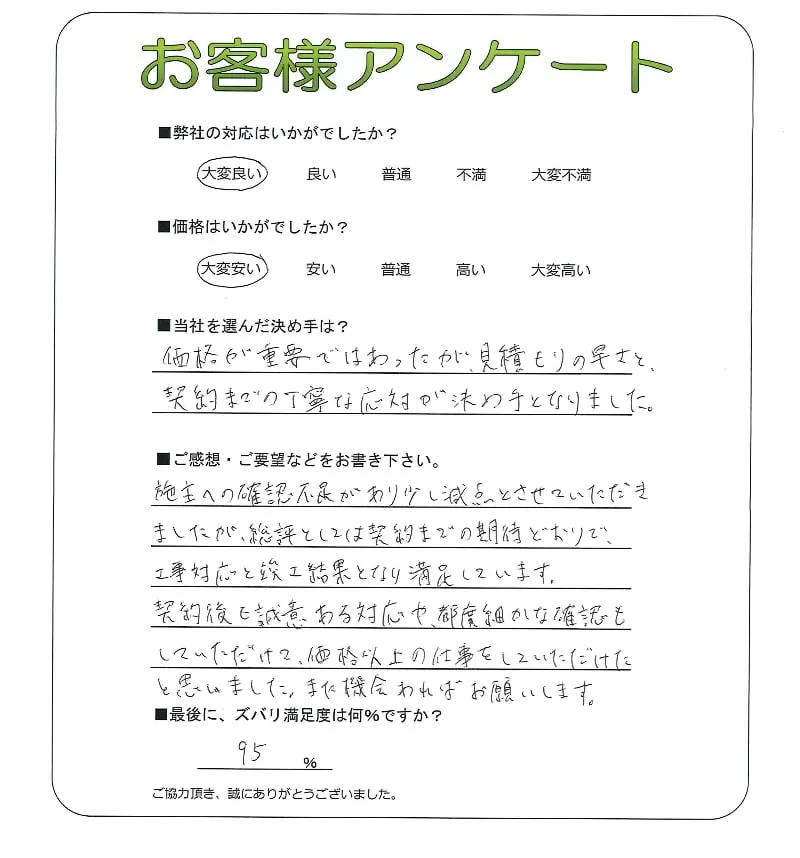 お客様アンケート
■弊社の対応はいかがでしたか？
大変良い 良い 普通 不満 大変不満
■価格はいかがでしたか？
大変安い 安い 普通 高い 大変高い
■当社を選んだ決め手は？
価格が重要ではあったが、見積もりの早さと、
契約までの丁寧な応対が決め手となりました。
■ご感想・ご要望などをお書き下さい。
施主への確認不足があり少し減点とさせていただき
ましたが、総評としては契約までの期待どおりで、
工事対応と竣工結果となり満足しています。
契約後も誠意ある対応や、都度細かな確認も
していただけて、価格以上の仕事をしていただけた
と思いました。また機会あればお願いします。
■最後に、ズバリ満足度は何%ですか？
95 %
ご協力頂き、誠にありがとうございました。